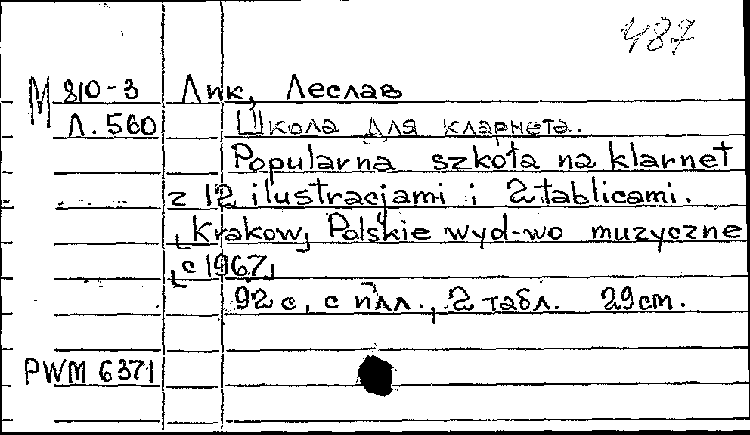 487
М 810-3 Лик, Леслав
Л. 560 Школа для кларнета.
Popularna szkoła na klarnet
z 12 ilustracjami i 2 tablicami.
[Krakow] Polskie wyd-wo muzyczne
[c 1967]
92 с. с илл., 2 табл. 29 cm.
PWM 6371